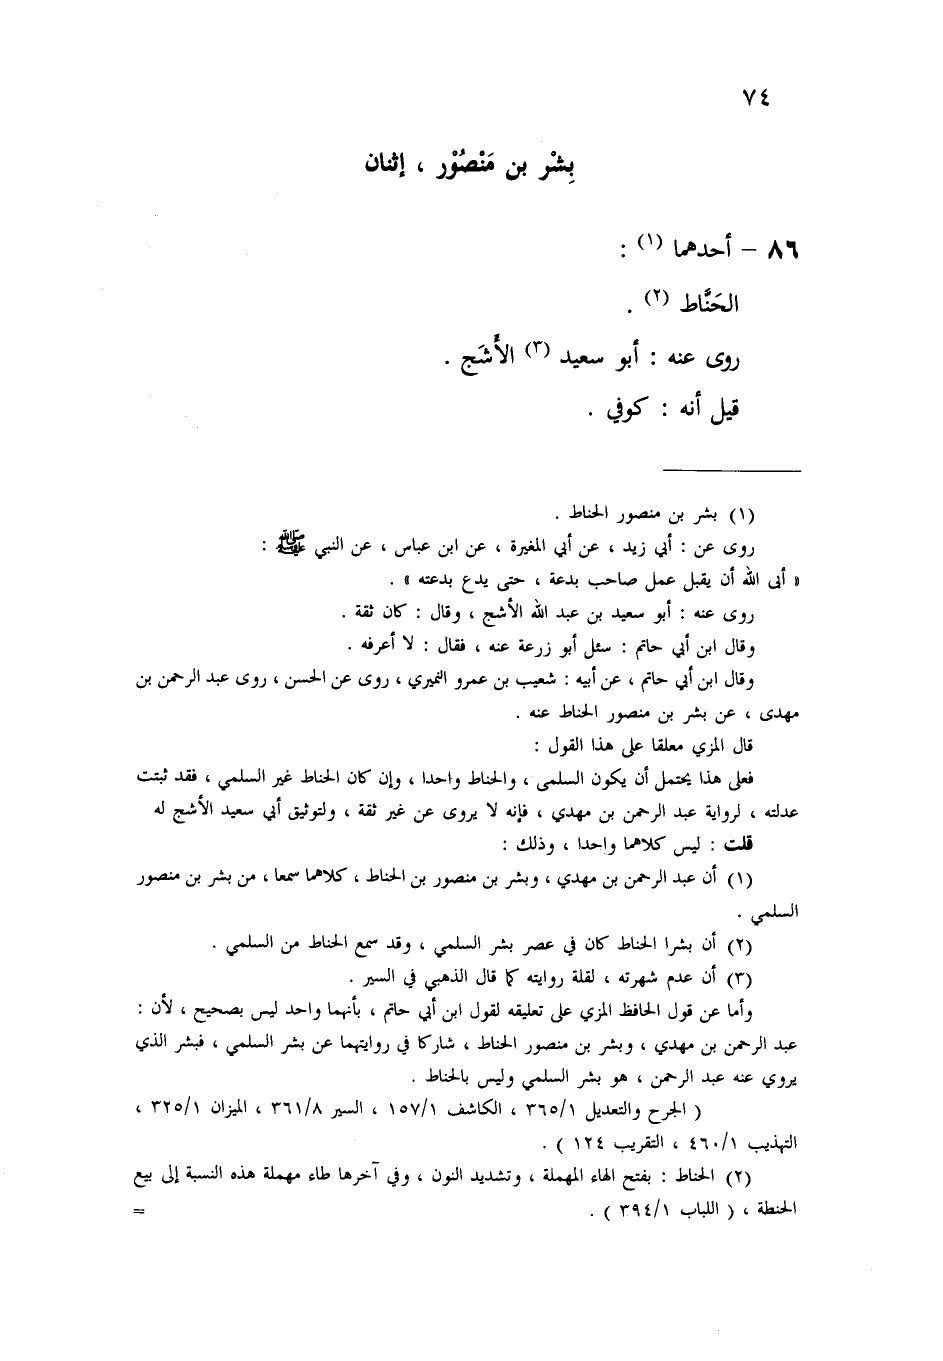 ٧٤
بِشْر بن مَنْصُوْر ، إثنان
٨٦ – أحدهما (١) :
الحَنَّاط (٢) .
روى عنه : أبو سعيد (٣) الأَشَج .
قيل أنه : كوفي .
(١) بشر بن منصور الحناط .
روى عن : أبي زيد ، عن أبي المغيرة ، عن ابن عباس ، عن النبي ﷺ :
« أبى الله أن يقبل عمل صاحب بدعة ، حتى يدع بدعته » .
روى عنه : أبو سعيد بن عبد الله الأشج ، وقال : كان ثقة .
وقال ابن أبي حاتم : سئل أبو زرعة عنه ، فقال : لا أعرفه .
وقال ابن أبي حاتم ، عن أبيه : شعيب بن عمرو النميري ، روى عن الحسن ، روى عبد الرحمن بن
مهدى ، عن بشر بن منصور الحناط عنه .
قال المزي معلقا على هذا القول :
فعلى هذا يحتمل أن يكون السلمى ، والحناط واحدا ، وإن كان الحناط غير السلمي ، فقد ثبتت
عدلته ، لرواية عبد الرحمن بن مهدي ، فإنه لا يروى عن غير ثقة ، ولتوثيق أبي سعيد الأشج له
قلت : ليس كلاهما واحدا ، وذلك :
(١) أن عبد الرحمن بن مهدي ، وبشر بن منصور بن الحناط ، كلاهما سمعا ، من بشر بن منصور
السلمي .
(٢) أن بشرا الحناط كان في عصر بشر السلمي ، وقد سمع الحناط من السلمي .
(٣) أن عدم شهرته ، لقلة روايته كما قال الذهبي في السير .
وأما عن قول الحافظ المزي على تعليقه لقول ابن أبي حاتم ، بأنهما واحد ليس بصحيح ، لأن :
عبد الرحمن بن مهدي ، وبشر بن منصور الحناط ، شاركا في روايتهما عن بشر السلمي ، فبشر الذي
يروي عنه عبد الرحمن ، هو بشر السلمي وليس بالحناط .
( الجرح والتعديل ٣٦٥/١ ، الكاشف ١٥٧/١ ، السير ٣٦١/٨ ، الميزان ٣٢٥/١ ،
التهذيب ٤٦٠/١ ، التقريب ١٢٤ ) .
(٢) الحناط : بفتح الهاء المهملة ، وتشديد النون ، وفي آخرها طاء مهملة هذه النسبة إلى بيع
الحنطة ، ( اللباب ٣٩٤/١ ) . =